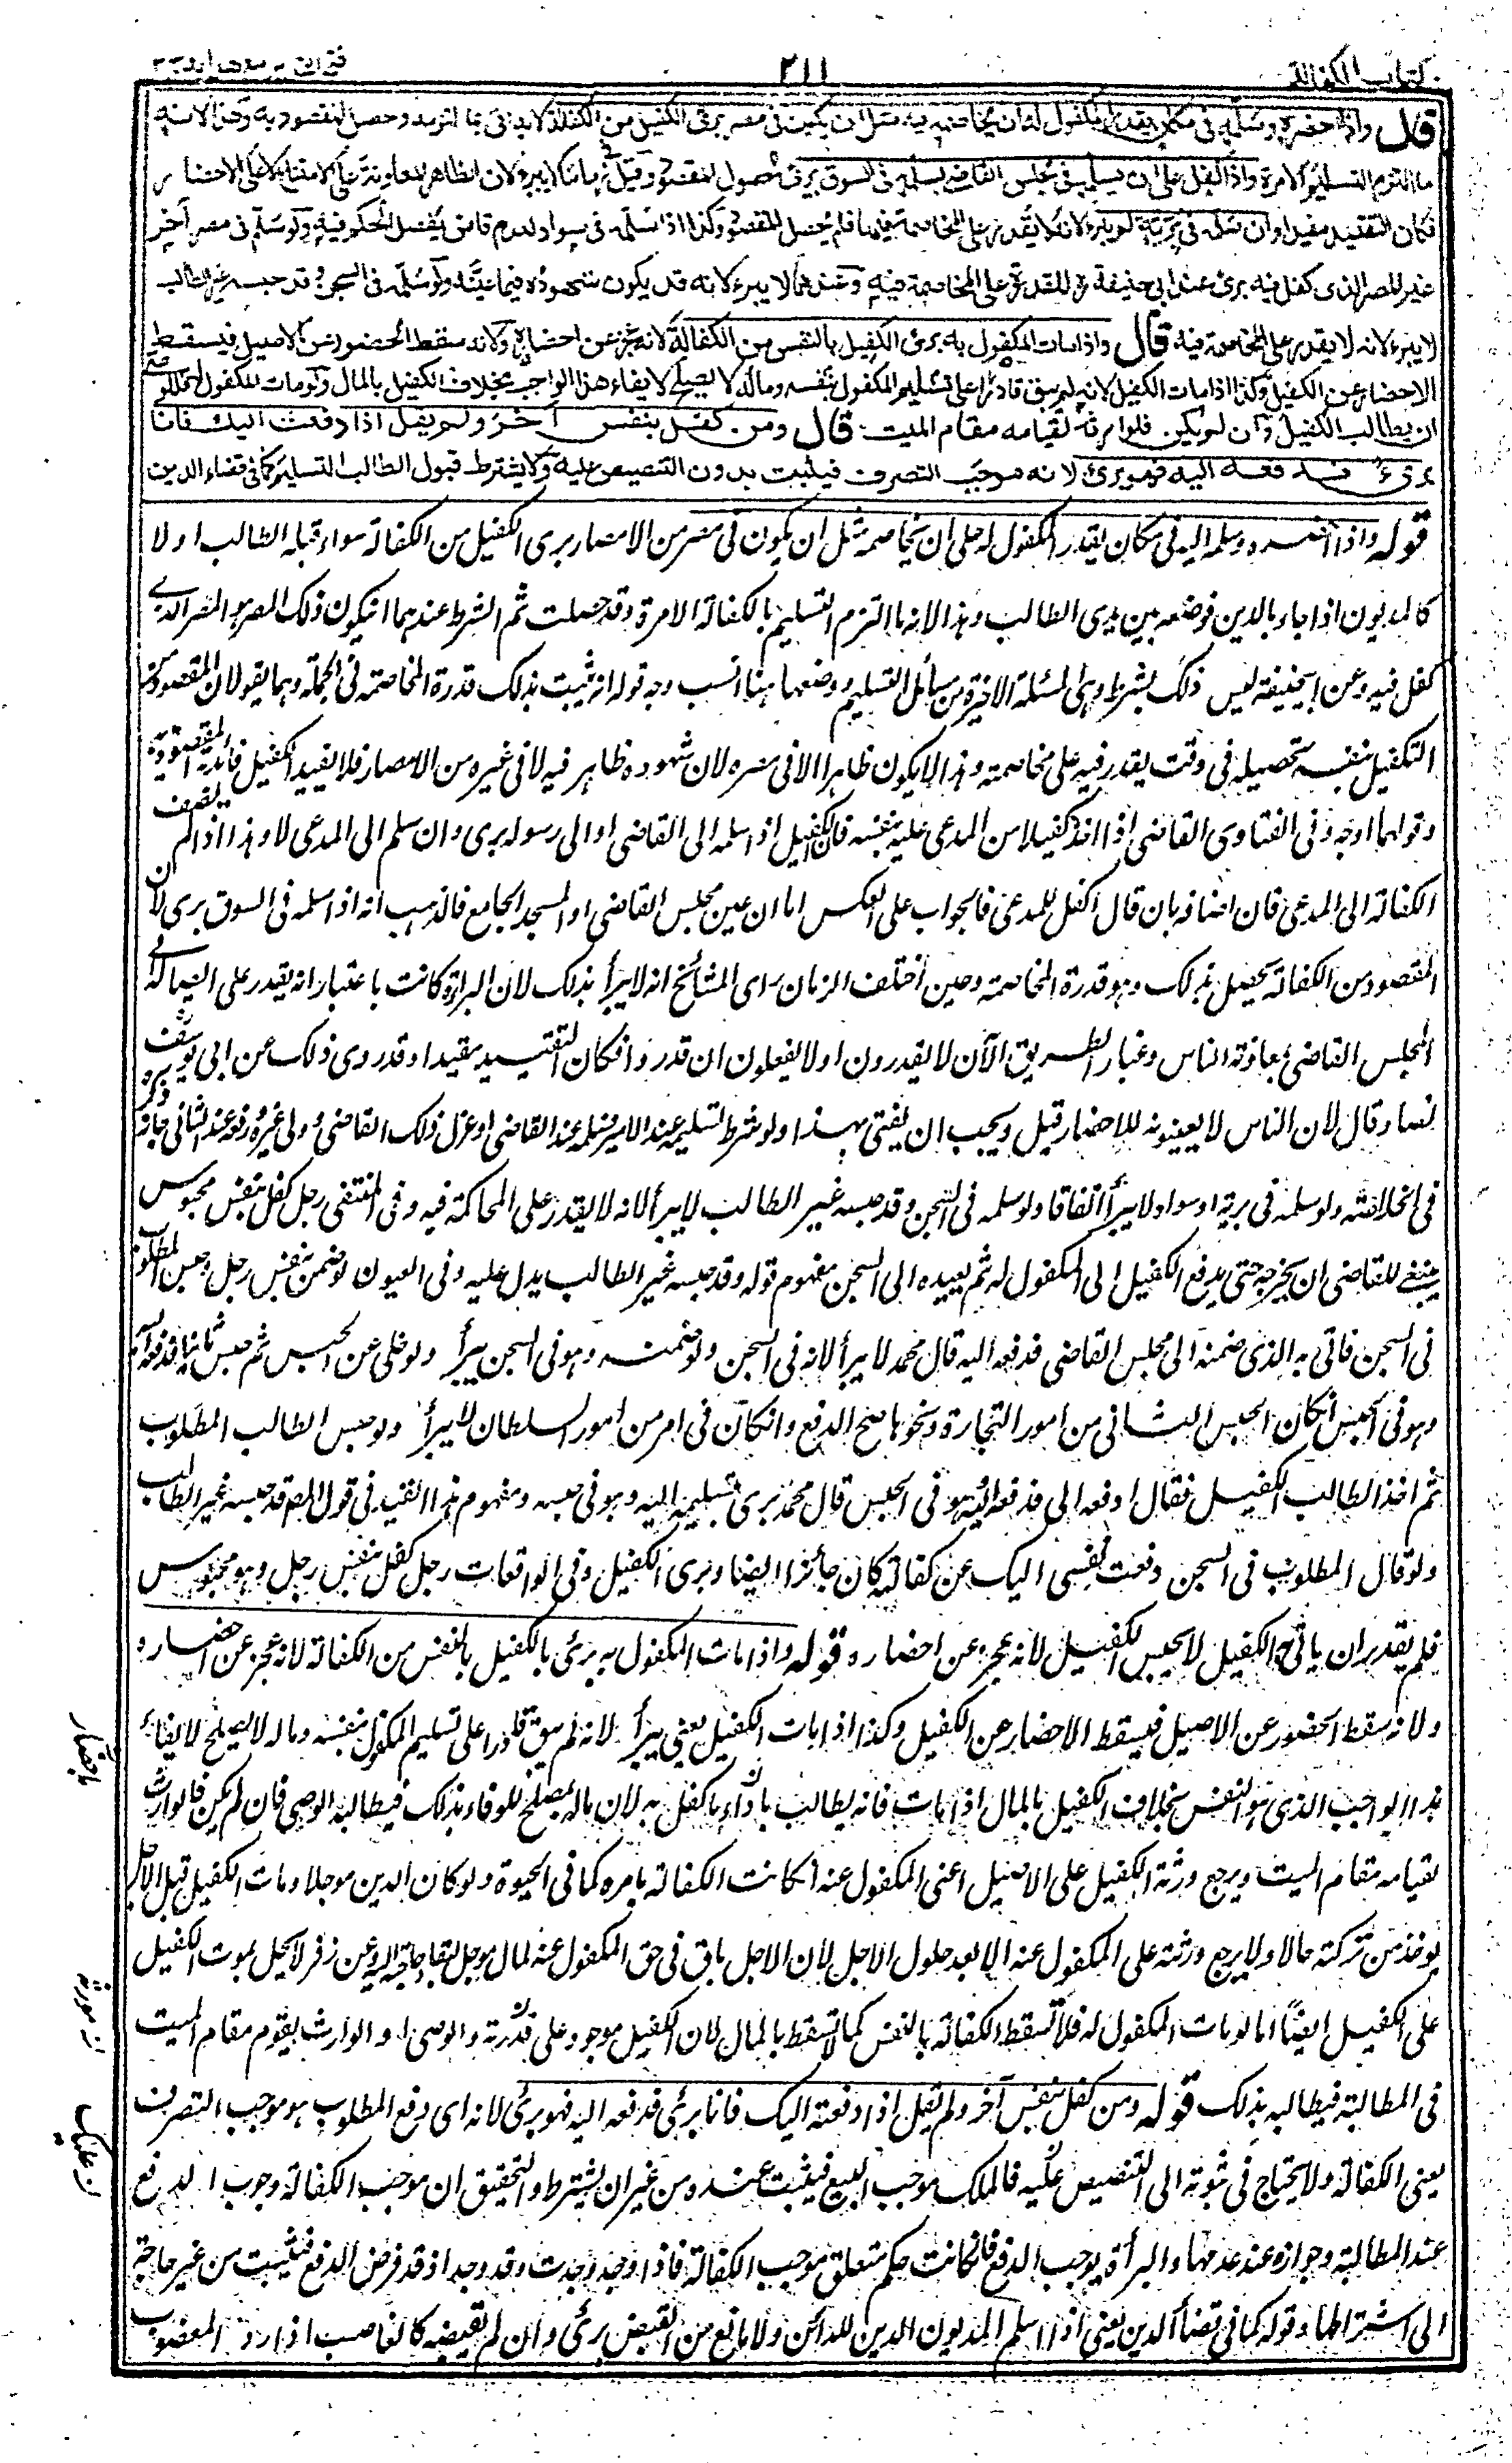 كتاب الكفالة
٢١١
فتح القدير مع هداية ج ٣
قال واذا احضره وسلمه في مكان يقدر المكفول له ان يخاصمه فيه مثل ان يكون في مصر برئ الكفيل من الكفالة لانه اتى بما التزمه وحصل المقصود به وهذا لانه
ما التزم التسليم الا مرة واذا كفل على ان يسلمه في مجلس القاضي فسلمه في السوق برئ لحصول المقصود وقيل في زماننا لا يبرء لان الظاهر المعاونة على الامتناع لا على الاحضار
فكان التقييد مفيدا وان سلمه في برية لم يبرء لانه لا يقدر على المخاصمة فيها فلم يحصل المقصود وكذا اذا سلمه في سواد لعدم قاض يفصل الحكم فيه ولو سلم في مصر آخر
غير المصر الذي كفل فيه برئ عند ابي حنيفة للقدرة على المخاصمة فيه وعندهما لا يبرء لانه قد يكون شهوده فيما عينه ولو سلمه في السجن وقد حبسه غير الطالب
لا يبرء لانه لا يقدر على المخاصمة فيه قال واذا مات المكفول به برئ الكفيل بالنفس من الكفالة لانه عجز عن احضاره ولانه سقط الحضور عن الاصيل فيسقط
الاحضار عن الكفيل وكذا اذا مات الكفيل لانه لم يبق قادرا على تسليم المكفول بنفسه وماله لا يصلح لايفاء هذا الواجب بخلاف الكفيل بالمال ولو مات المكفول له فللوصي
ان يطالب الكفيل وان لم يكن فلوارثه لقيامه مقام الميت قال ومن كفل بنفس آخر ولم يقل اذا دفعت اليك فانا
برئ فدفعه اليه فهو برئ لانه موجب التصرف فيثبت بدون التنصيص عليه ولا يشترط قبول الطالب التسليم كما في قضاء الدين
قوله واذا احضره وسلمه اليه في مكان يقدر المكفول له على ان يخاصمه مثل ان يكون في مصر من الامصار برى الكفيل من الكفالة سواء قبله الطالب او لا
كالمديون اذا جاء بالدين فوضعه بين يدي الطالب وهذا لانه ما التزم التسليم بالكفالة الا مرة وقد حصلت ثم الشرط عندهما ان يكون ذلك المصر هو المصر الذي
كفل فيه وعن ابي حنيفة ليس ذلك بشرط وهي المسئلة الاخيرة من مسائل التسليم ووضعها هنا انسب وجه قوله انه يثبت بذلك قدرة المخاصمة في الجملة وهما يقولان المقصود من
التكفيل بنفسه تحصيله في وقت يقدر فيه على مخاصمته وهذا لا يكون ظاهرا الا في مصره لان شهوده ظاهر فيه لا في غيره من الامصار فلا يفيد التكفيل فائدته المقصودة
وقولهما اوجه وفي الفتاوى القاضي اذا اخذ كفيلا من المدعى عليه بنفسه فان الكفيل اذا سلمه الى القاضي او الى رسوله برى وان سلم الى المدعي لا وهذا اذا لم يضف
الكفالة الى المدعي فان اضافه بان قال اكفل للمدعي فالجواب على العكس اما ان عين مجلس القاضي او المسجد الجامع فالمذهب انه اذا سلمه في السوق برى لان
المقصود من الكفالة يحصل بذلك وهو قدرة المخاصمة وحين اختلف الزمان راى المشائخ انه لا يبرأ بذلك لان البراءة كانت باعتبار انه يقدر على ايصاله الى
المجلس القاضي بمعاونة الناس وغبار الطريق الآن لا يقدرون او لا يفعلون ان قدروا فكان التقييد مفيدا وقد روى ذلك عن ابي يوسف
نصا وقال لان الناس لا يعينونه للاحضار قيل ويجب ان يفتى بهذا ولو شرط تسليمه عند الامير فسلمه عند القاضي او عزل ذلك القاضي وولى غيره فدفعه عند الثاني جاز
في الخلاصة ولو سلمه في برية او سواد لا يبرأ اتفاقا ولو سلمه في السجن وقد حبسه غير الطالب لا يبرأ لانه لا يقدر على المحاكمة فيه وفي المنتقى رجل كفل بنفس محبوس
ينبغي للقاضي ان يخرجه حتى يدفع الكفيل الى المكفول له ثم يعيده الى السجن مفهوم قوله وقد حبسه غير الطالب يدل عليه وفي العيون لو ضمن بنفس رجل وحبس المطلوب
في السجن فاتى به الذي ضمنه الى مجلس القاضي فدفعه اليه قال محمد لا يبرأ لانه في السجن ولو ضمنه وهو في السجن يبرأ ولو خلى عن الحبس ثم حبس ثانيا فدفعه اليه
وهو في الحبس ان كان الحبس الثاني من امور التجارة ونحوها صح الدفع وان كان في امر من امور السلطان لا يبرأ ولو حبس الطالب المطلوب
ثم اخذ الطالب الكفيل فقال ادفعه الي فدفعه اليه وهو في الحبس قال محمد برى بتسليمه اليه وهو في حبسه ومفهوم هذا القيد في قول المصر قد حبسه غير الطالب
ولو قال المطلوب في السجن دفعت نفسي اليك عن كفالته كان جائزا ايضا وبرى الكفيل وفي الواقعات رجل كفل بنفس رجل وهو محبوس
فلم يقدر ان ياتي به الكفيل لا يحبس الكفيل لانه عجز عن احضاره قوله واذا مات المكفول به برئ الكفيل بالنفس من الكفالة لانه عجز عن احضاره
ولانه سقط الحضور عن الاصيل فيسقط الاحضار عن الكفيل وكذا اذا مات الكفيل يعني يبرأ لانه لم يبق قادرا على تسليم المكفول بنفسه وماله لا يصلح لايفاء
هذا الواجب الذي هو النفس بخلاف الكفيل بالمال اذا مات فانه يطالب باداء ما كفل به لان ماله يصلح للوفاء بذلك فيطالبه الوصي فان لم يكن فالوارث
لقيامه مقام الميت ويرجع ورثة الكفيل على الاصيل اعني المكفول عنه ان كانت الكفالة بامره كما في الحيوة ولو كان الدين موجلا ومات الكفيل قبل الاجل
يوخذ من تركته حالا ولا يرجع ورثته على المكفول عنه الا بعد حلول الاجل لان الاجل باق في حق المكفول عنه لمال موجل لبقاء حاجته اليه وعن زفر لا يحل بموت الكفيل
على الكفيل ايضا اما لو مات المكفول له فلا تسقط الكفالة بالنفس كما لا تسقط بالمال لان الكفيل موجود على قدرته والوصي او الوارث يقوم مقام الميت
في المطالبة فيطالبه بذلك قوله ومن كفل بنفس آخر ولم يقل اذا دفعته اليك فانا برئ فدفعه اليه فهو برئ لانه اي دفع المطلوب هو موجب التصرف
يعني الكفالة ولا يحتاج في ثبوته الى التنصيص عليه فالملك موجب البيع فيثبت عنده من غير ان يشترط والتحقيق ان موجب الكفالة وجوب الدفع
عند المطالبة وجوازه عند عدمها والبرأة بوجب الدفع فكانت حكم متعلق موجب الكفالة فاذا وجد وجدت وقد وجد اذ قد فرض الدفع فيثبت من غير حاجة
الى اشتراطها وقوله كما في قضأ الدين يعني اذا سلم المديون الدين للدائن ولا مانع من القبض برئ وان لم يقبضه كالغاصب اذا رد المغصوب